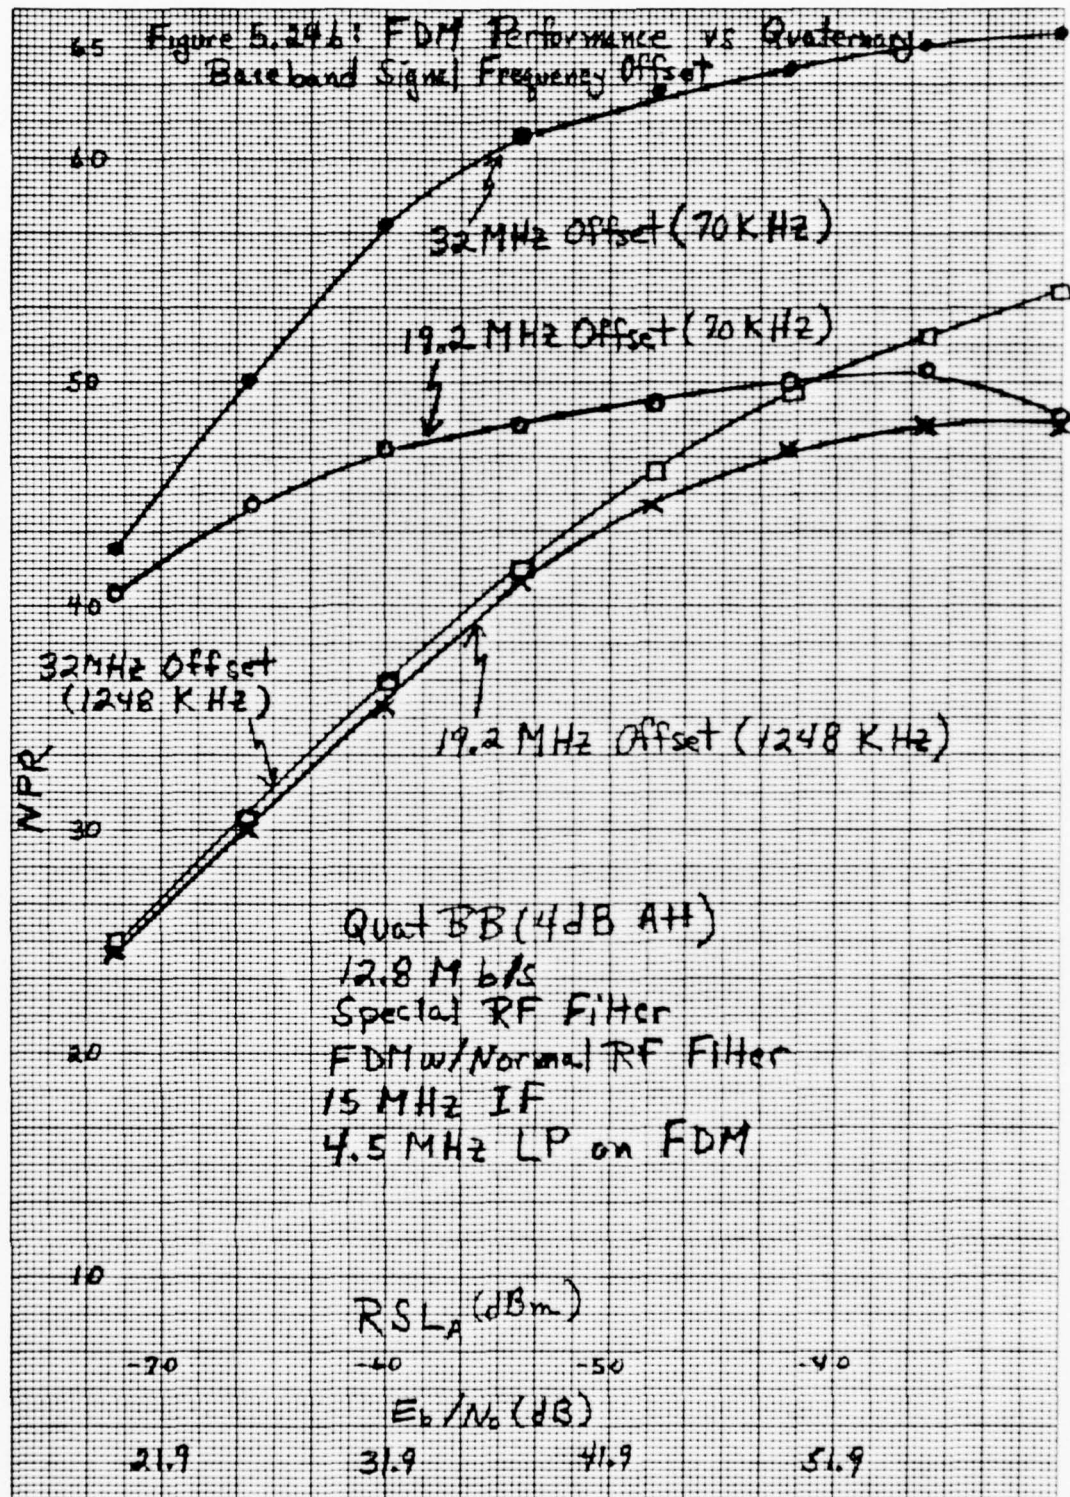 65
Figure 5.24b: FDM Performance vs Quaternary
Baseband Signal Frequency Offset
60
32 MHz Offset (70 KHz)
19.2 MHz Offset (70 KHz)
50
40
32MHz Offset
(1248 KHz)
19.2 MHz Offset (1248 KHz)
NPR
30
Quat BB (4dB Att)
12.8 M b/s
Special RF Filter
20
FDM w/Normal RF Filter
15 MHz IF
4.5 MHz LP on FDM
10
RSL_A (dBm)
-70 -60 -50 -40
E_b/N_o (dB)
21.9 31.9 41.9 51.9